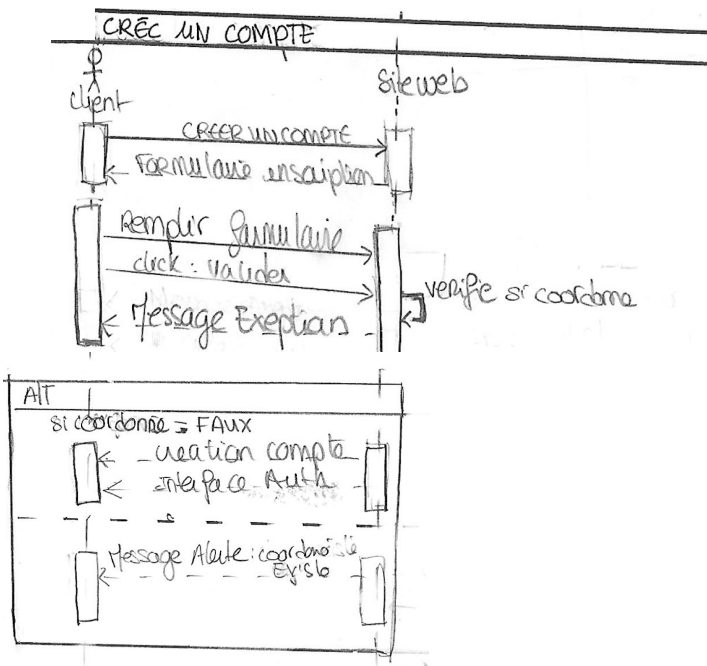 CRÉC UN COMPTE
client
Siteweb
CREER UN COMPTE
Formulaire inscription
Remplir formulaire
click : valider
verifie si coordonne
Message Exeption
AlT
si coordonnée = FAUX
creation compte
Interface Auth
Message Alerte : coordonnée
Existe